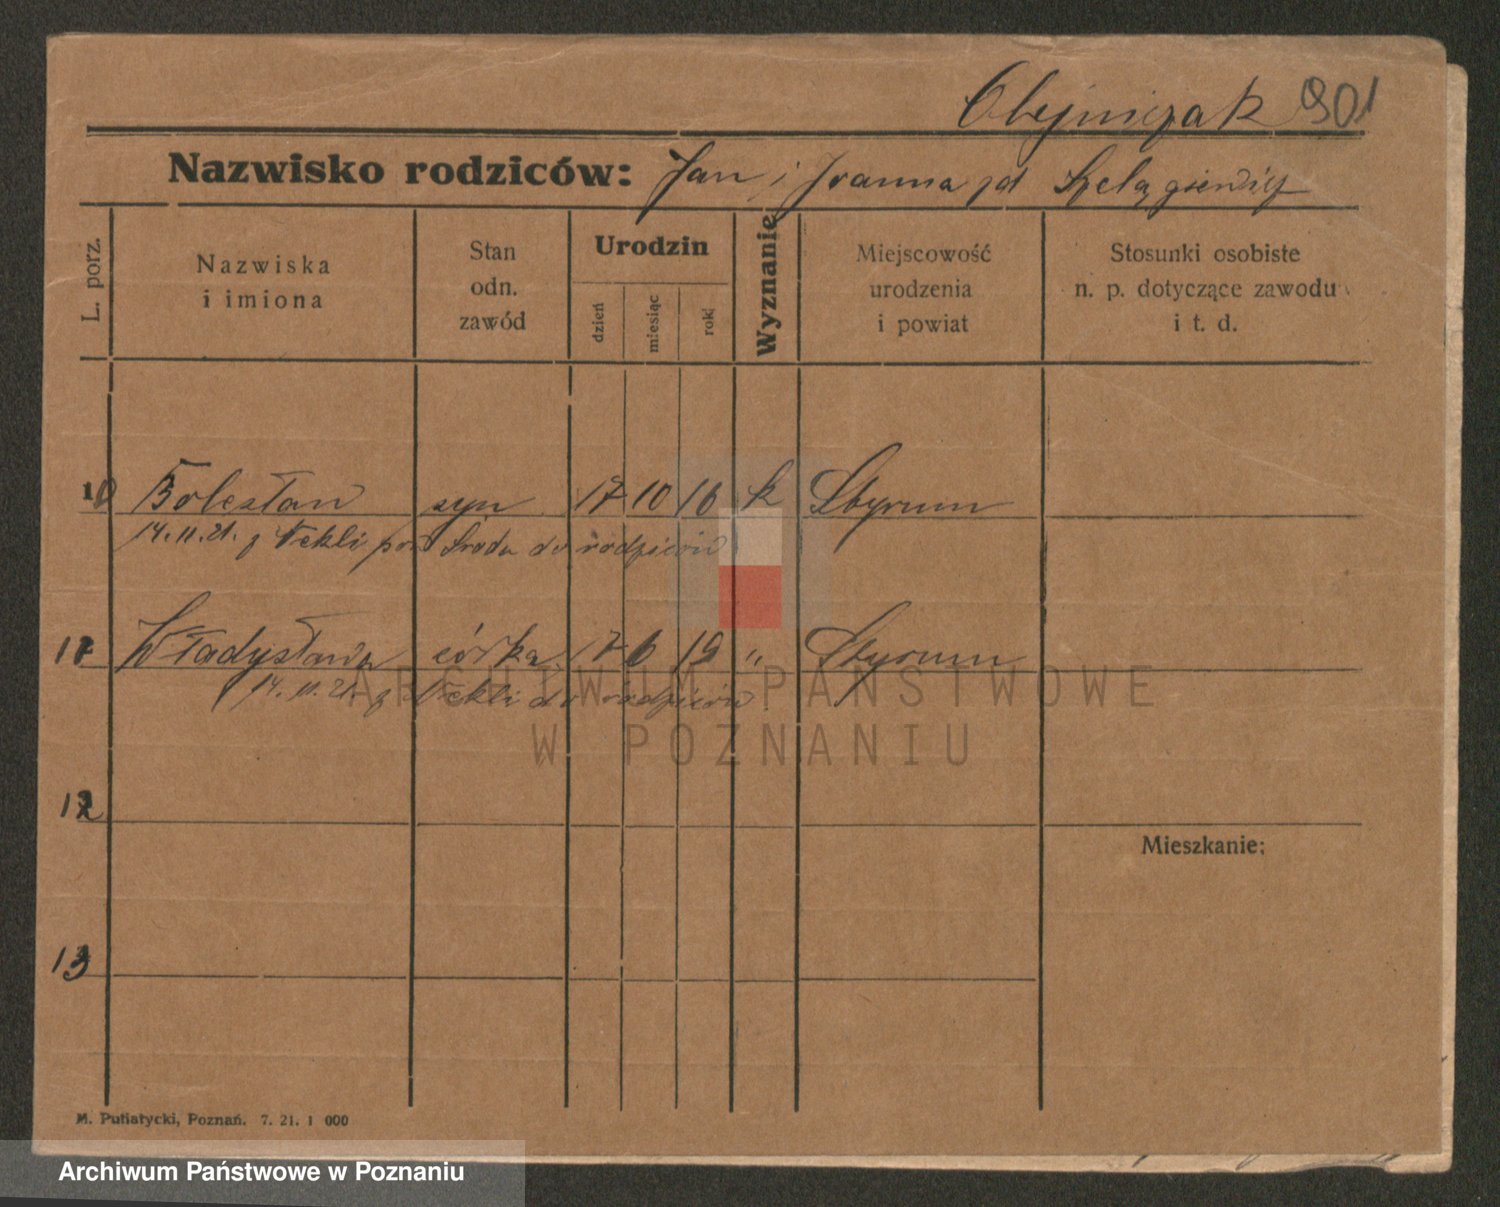 Olejniczak 901
Nazwisko rodziców: Jan i Joanna zd
L. porz.
Nazwiska
i imiona
Stan
odn.
zawód
Urodzin
dzień
miesiąc
rok
Wyznanie
Miejscowość
urodzenia
i powiat
Stosunki osobiste
n. p. dotyczące zawodu
i t. d.
10 Bolesław syn 17 10 16 k Styrum
14.11.21. z Nekli pow Środa do rodziców
11 Władysława córka 17 6 19 " Styrum
14.11.21 z Nekli do rodziców
ARCHIWUM PAŃSTWOWE
W POZNANIU
12
Mieszkanie:
13
M. Putiatycki, Poznań. 7. 21. 1 000
Archiwum Państwowe w Poznaniu